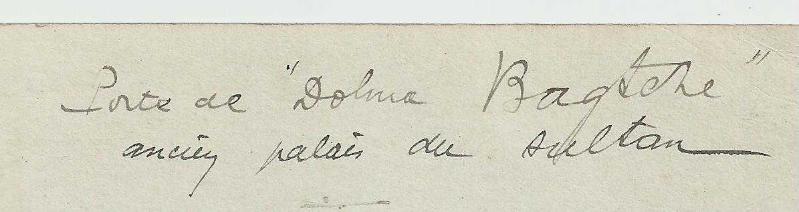 Porte de "Dolma Bagtche"
ancien palais du sultan